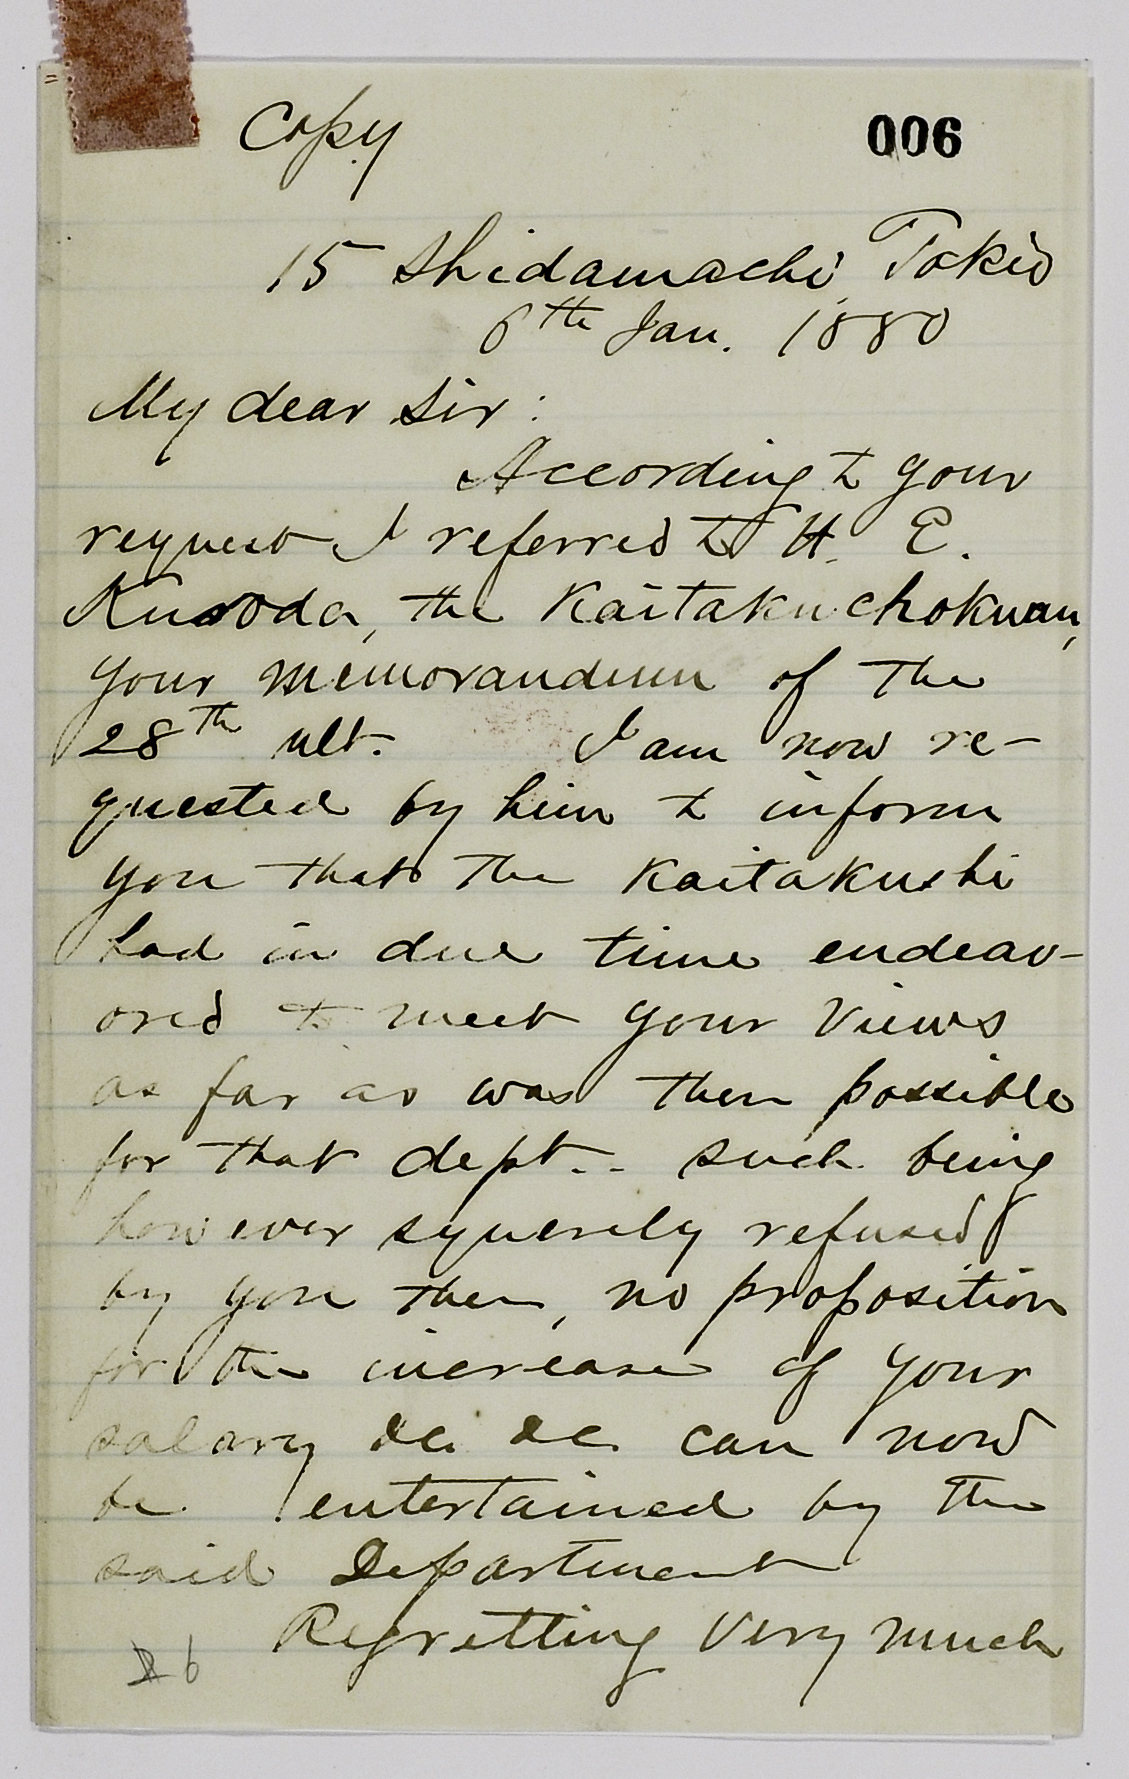 Copy
006
15 Shidamachi, Tokio
6th Jan. 1880
My dear Sir:
According to your
request I referred to H. E.
Kuroda, the Kaitakuchokwan,
your memorandum of the
28th ult. I am now re-
quested by him to inform
you that the Kaitakushi
had in due time endeav-
ored to meet your views
as far as was then possible
for that dept. - such being
however squarely refused
by you then, no proposition
for the increase of your
salary &c. &c. can now
be entertained by the
said Department
Regretting very much